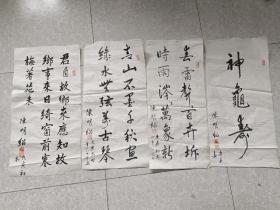 君自故鄉來應知故
鄉事來日綺窗前寒
梅著花未
陳明紹
青山不墨千秋畫
綠水無弦萬古琴
陳明紹
春雷聲百卉坼
時雨 萬象新
陳明紹
神龜壽
陳明紹